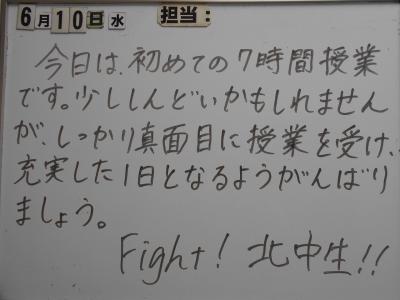 6月10日水 担当:
今日は、初めての7時間授業
です。少ししんどいかもしれません
が、しっかり真面目に授業を受け、
充実した1日となるようがんばり
ましょう。
Fight! 北中生!!